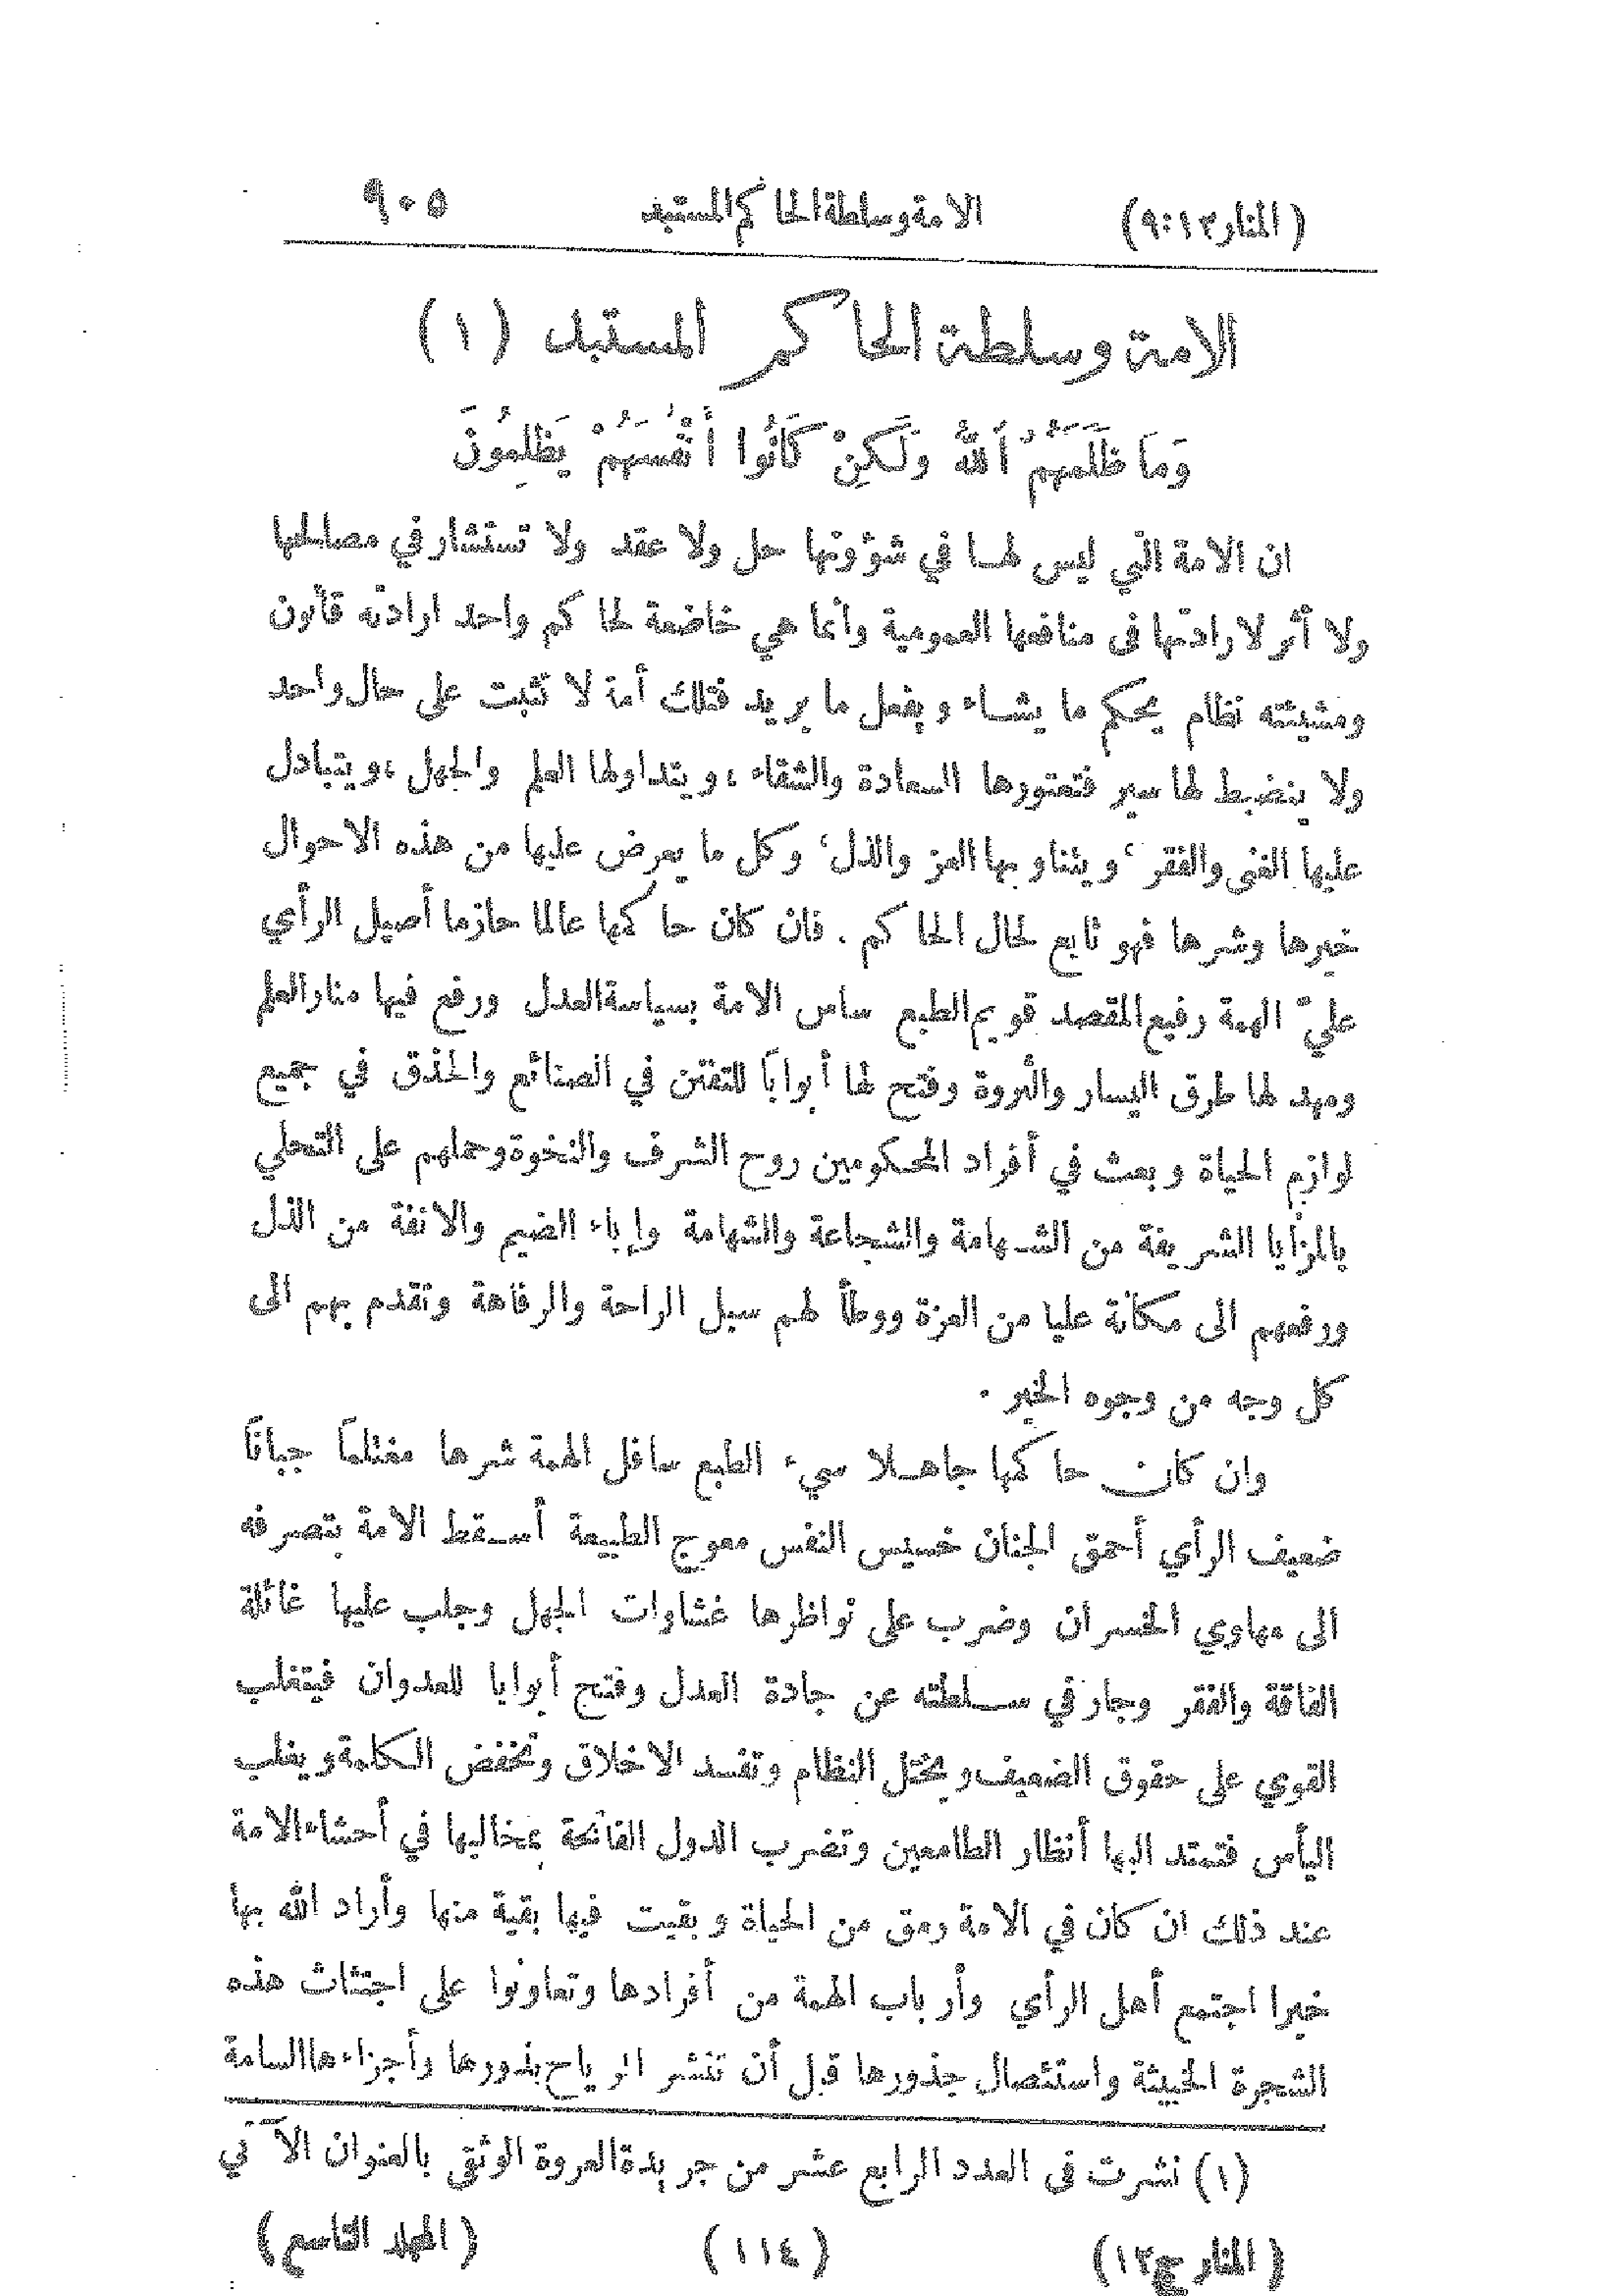 (المنار١٢:٩) الامة وسلطة الحاكم المستبد ٩٠٥
الامة وسلطة الحاكم المستبد (١)
وَمَا ظَلَمَهُمُ اَللّٰهُ وَلَكِنْ كَانُوا أَنْفُسَهُمْ يَظْلِمُونَ
ان الامة التي ليس لهـا في شؤونها حل ولا عقد ولا تستشار في مصالحها
ولا أثر لارادتها فى منافعها العمومية وانما هي خاضعة لحاكم واحد ارادته قانون
ومشيئته نظام يحكم ما يشـاء ويفعل ما يريد فتلك أمة لا تثبت على حال واحد
ولا ينضبط لها سير فتعتورها السعادة والشقاء ، ويتداولها العلم والجهل ، ويتبادل
عليها الغنى والفقر ، ويتناوبها العز والذل ، وكل ما يعرض عليها من هذه الاحوال
خيرها وشرها فهو تابع لحال الحاكم . فان كان حاكمها عالما حازما أصيل الرأي
عليّ الهمة رفيع المقصد قويم الطبع ساس الامة بسياسة العدل ورفع فيها منار العلم
ومهد لها طرق اليسار والثروة وفتح لها أبواباً للتفنن في الصنائع والحذق في جميع
لوازم الحياة وبعث في أفراد المحكومين روح الشرف والنخوة وحملهم على التحلي
بالمزايا الشريفة من الشـهامة والشجاعة والشهامة وإباء الضيم والانفة من الذل
ورفعهم الى مكانة عليا من العزة ووطأ لهم سبل الراحة والرفاهة وتقدم بهم الى
كل وجه من وجوه الخير .
وان كان حاكمها جاهـلا سيء الطبع سافل الهمة شرها مغتلماً جباناً
ضعيف الرأي أحمق الجنان خسيس النفس معوج الطبيعة أسـقط الامة بتصرفه
الى مهاوي الخسران وضرب على نواظرها غشاوات الجهل وجلب عليها غائلة
الفاقة والفقر وجار في سـلطته عن جادة العدل وفتح أبوابا للعدوان فيتغلب
القوي على حقوق الضعيف ويختل النظام وتفسد الاخلاق وتخفض الكلمة ويغلب
اليأس فتمتد اليها أنظار الطامعين وتضرب الدول الفاتحة بمخاليها في أحشاء الامة
عند ذلك ان كان في الامة رمق من الحياة وبقيت فيها بقية منها وأراد الله بها
خيرا اجتمع أهل الرأي وأرباب الهمة من أفرادها وتعاونوا على اجتثاث هذه
الشجرة الخبيثة واستئصال جذورها قبل أن تنشر الرياح بذورها وأجزاءها السامة
(١) نشرت فى العدد الرابع عشر من جريدة العروة الوثقى بالعنوان الآتي
(المنار ج١٢) (١١٤) (المجلد التاسع)